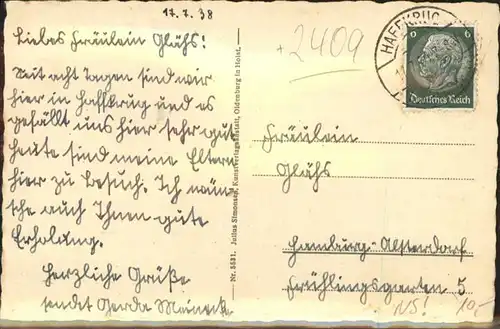 17.7.38
Liebes Fräulein Glähs!
Seit acht Tagen sind wir
hier in Haffkrug und es
gefällt uns hier sehr gut
heute sind meine Eltern
hier zu Besuch. Ich wün
sche auch Ihnen gute
Erholung.
Herzliche Grüße
sendet Gerda Meineck
Nr. 5531. Julius Simonsen, Kunstverlagsanstalt, Oldenburg in Holst.
+2409
HAFFKRUG
6 6
Deutsches Reich
Fräulein
Glähs
Hamburg-Alsterdorf
Frühlingsgarten 5
NS! 10,-